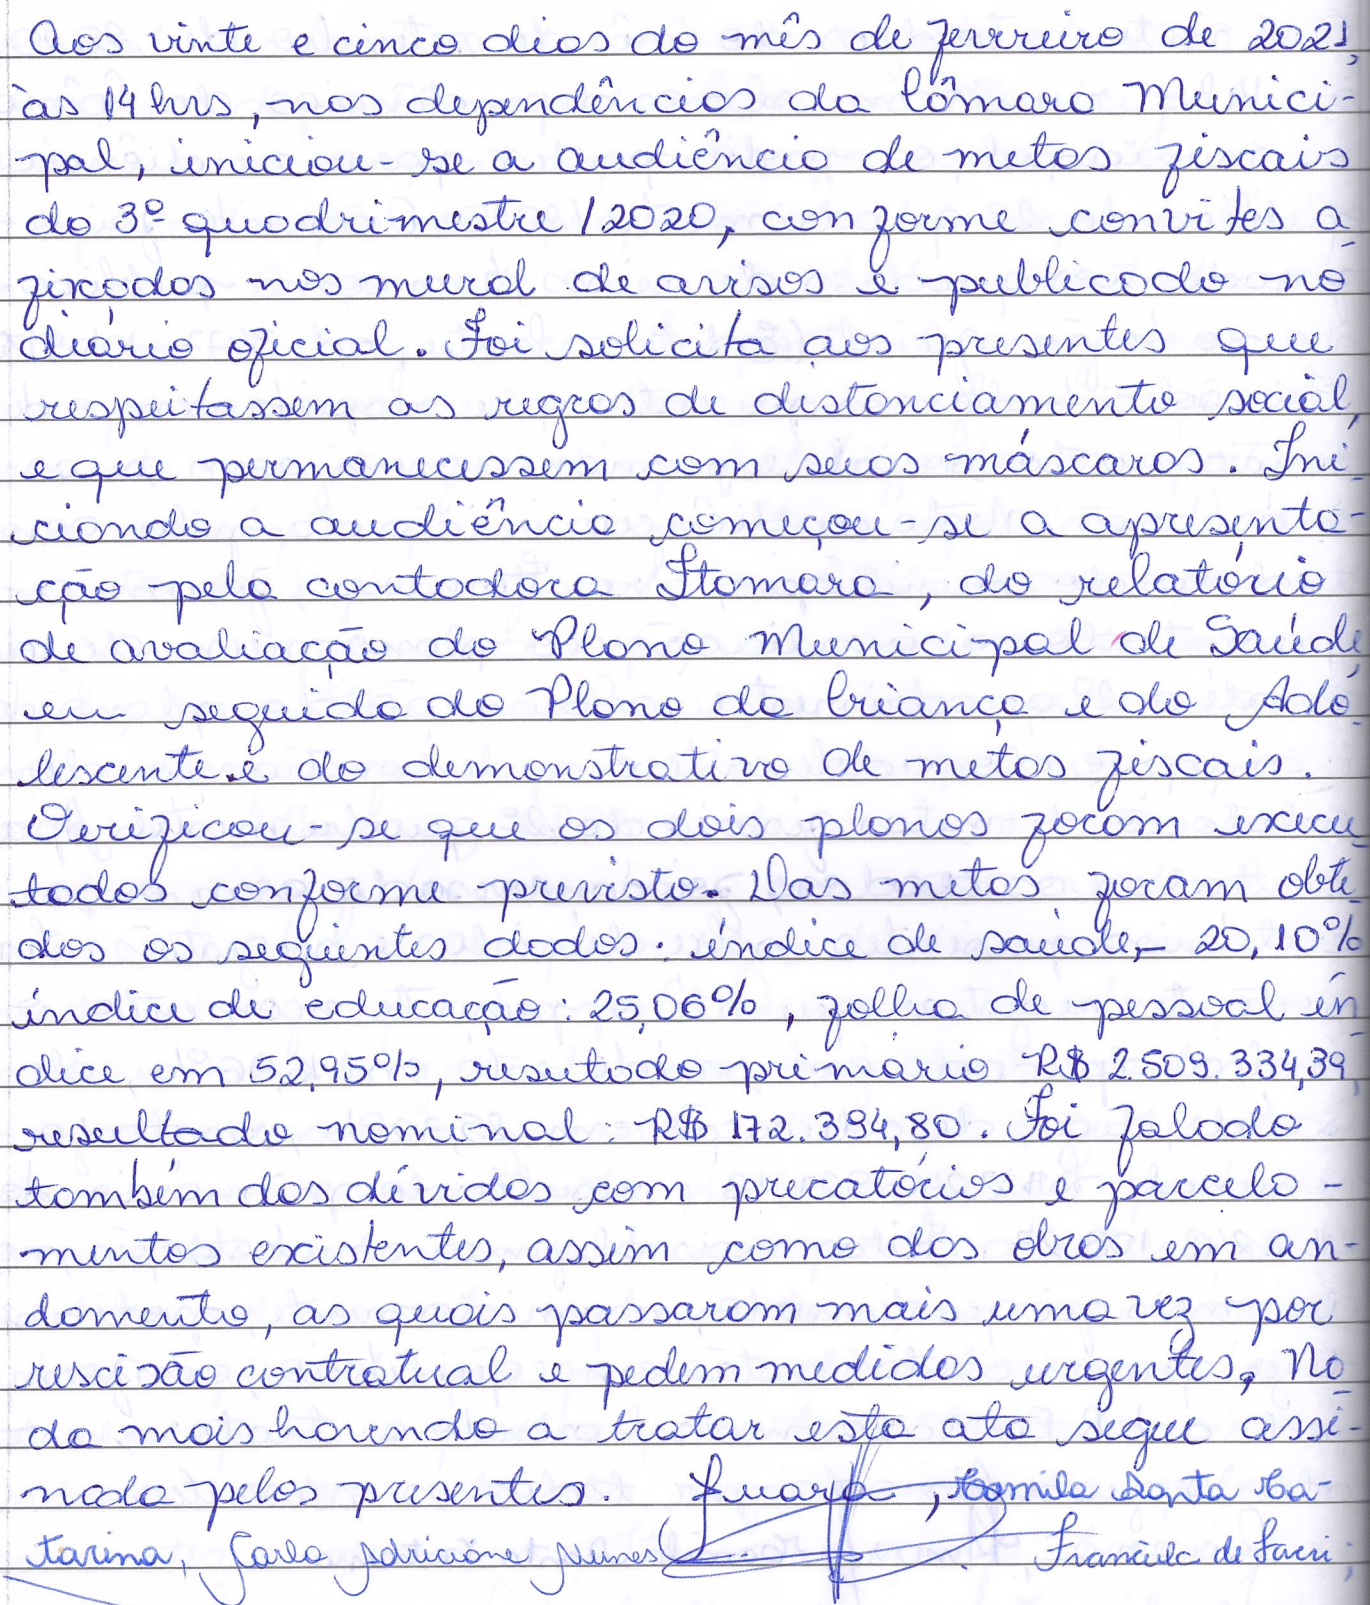 Aos vinte e cinco dias do mês de fevereiro de 2021,
às 14 hrs, nas dependências da Câmara Munici-
pal, iniciou-se a audiência de metas fiscais
do 3º quadrimestre/2020, conforme convites a
fixados nos mural de avisos e publicado no
diário oficial. Foi solicita aos presentes que
respeitassem as regras de distanciamento social,
e que permanecessem com suas máscaras. Ini
ciando a audiência começou-se a apresenta-
ção pela contadora Itamara, do relatório
de avaliação do Plano Municipal de Saúde
em seguida do Plano da Criança e do Ado
lescente e do demonstrativo de metas fiscais.
Verificou-se que os dois planos foram execu
tados conforme previsto. Das metas foram obti
dos os seguintes dados: índice de saúde,- 20,10%
índice de educação: 25,06%, folha de pessoal ín
dice em 52,95%, resutado primário R$ 2.509.334,39,
resultado nominal: R$ 172.394,80. Foi falado
também das dívidas com precatórios e parcela-
mentos existentes, assim como das obras em an-
damento, as quais passaram mais uma vez por
rescisão contratual e pedem medidas urgentes, Na
da mais havendo a tratar esta ata segue assi-
nada pelos presentes. , Camila Santa Ca-
tarina, Adriane Nunes Francieli de